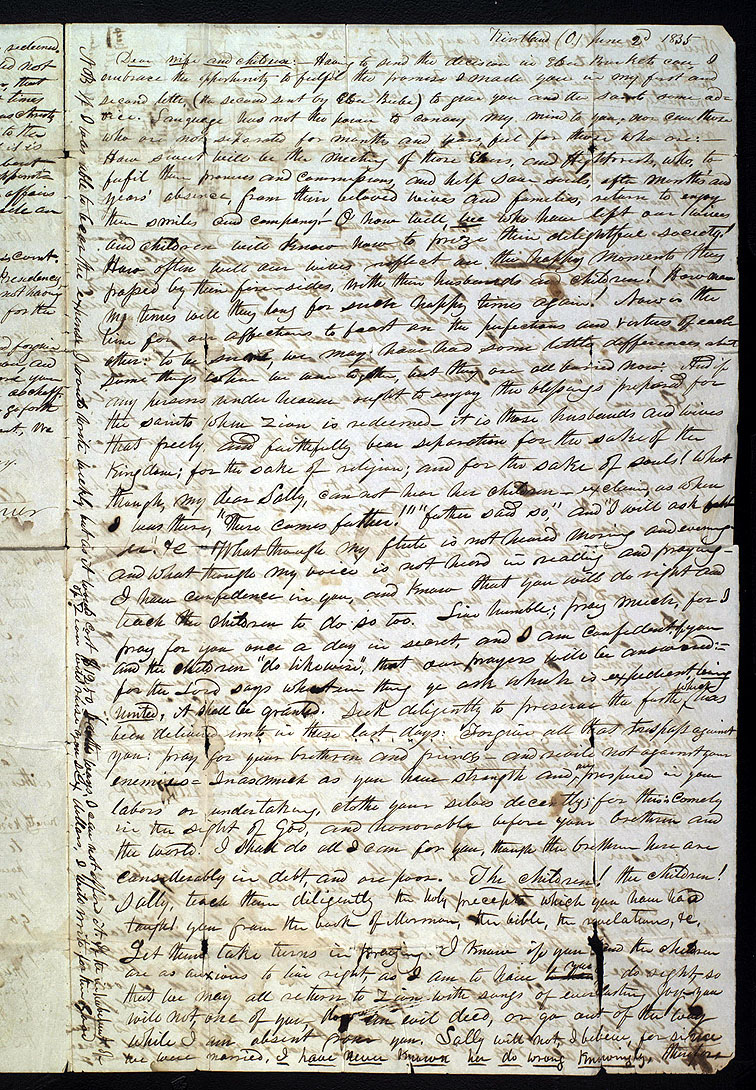 Kirtland (O) June 2d 1835
Dear wife and children:— Having to send the decision in Eld. Burket's case, I
embrace the opportunity to fulfil the promise I made you in my first and
second letter, (the second sent by Elder Bebee) to give you and the saints some ad-
vice. Language has not the power to convey my mind to you: nor can those
who are not separated for months and years, feel for those who are:—
How sweet will be the meeting of those Elders, and High Priests, who, to
fulfil their promises and commissions, and help save souls, after months' and
years' absence, from their beloved wives and families, return to enjoy
their smiles and company! O how will, we who have left our wives
and children will know how to prize their delightful society!
How often will our wives reflect on the happy moments they
passed by their firesides, with their husbands and children! How ma-
ny times will they long for such happy times again! Now is the
time for our affections to feast on the perfections and virtues of each
other: to be sure, we may have had some little differences about
some things when we were together, but they are all buried now: And if
any persons under heaven ought to enjoy the blessings prepared for
the saints when Zion is redeemed— it is those husbands and wives
that freely and faithfully bear separation for the sake of the
kingdom; for the sake of religion; and for the sake of souls! What
though, my dear Sally, can not hear her children— exclaim, as when
I was there, "There comes father!" "father said so" and "I will ask
&c— What though my flute is not heard morning and evening—
and what though my voice is not heard in reading and praying—
I have confidence in you, and know that you will do right and
teach the children to do so too. Live humble; pray much, for I
pray for you once a day in secret, and I am confident if you
and the children "do likewise", that our prayers will be answered:—
for the Lord says whatsoever thing ye ask which is expedient, being
united, it shall be granted. Seek diligently to preserve the faith which has
been delivered unto us these last days: Forgive all that trespass against
you: pray for your brethren and friends— and revile not against your
enemies— Inasmuch as you have strength and are prospered in your
labors or undertaking, clothe your selves decently; for this is comely
in the sight of God, and honorable before your brethren and
the world. I shall do all I can for you, though the brethren here are
considerably in debt, and are poor. The children! the children!
Sally, teach them diligently the holy precepts which you have had
taught you from the book of Mormon, the bible, the revelations, &c.
Let them take turns in praying. I know if you and the children
are as anxious to live right as I am to have you do right so
that we may all return to Zion with songs of everlasting joy, you
will not, one of you, do an evil deed, or go out of the way
while I am absent from you. Sally will not, I believe, for since
we were married, I have never known her do wrong knowingly, therefore
N.B. If I was able to bear the expense I would write weekly but as it would cost $12.50 both ways, I can not afford it. If the inhabitants
of Zion will raise me sixty dollars, I will write for the good